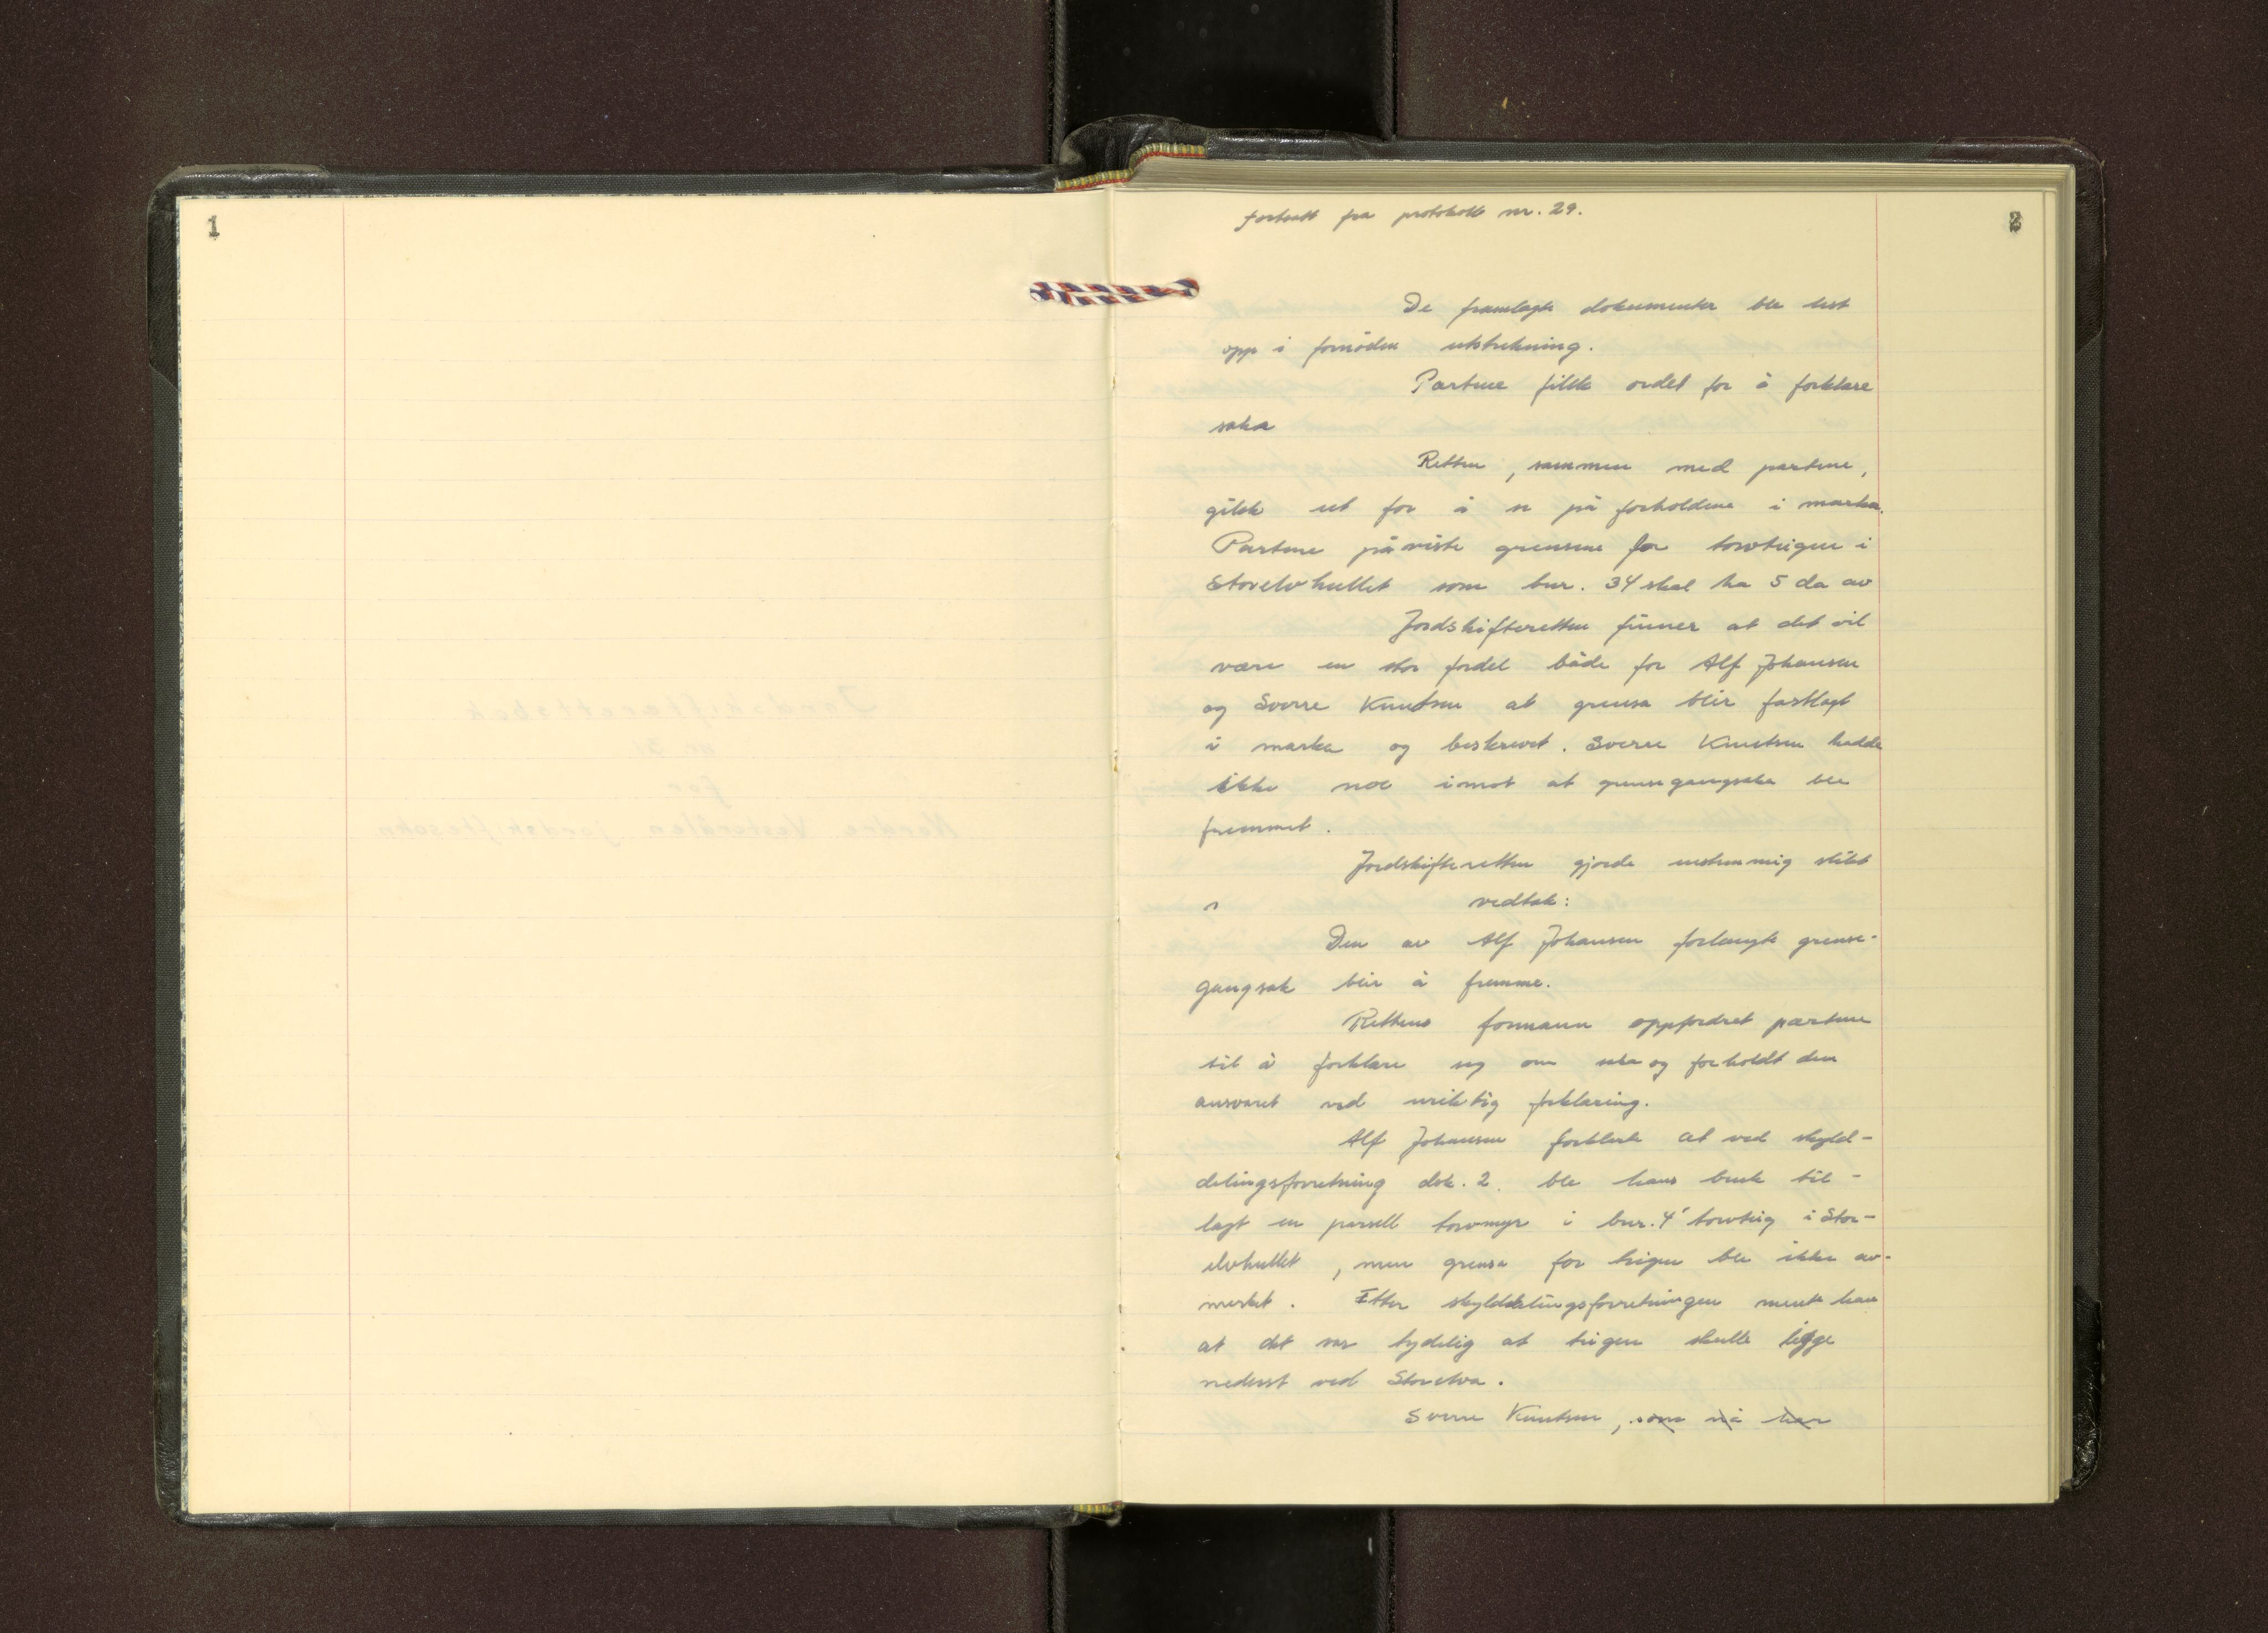 1
2
fortsatt fra protokoll nr. 29.
De framlagte dokumenter ble lest
opp i fornøden utstrekning.
Partene fikk ordet for å forklare
saka
Retten, sammen med partene,
gikk ut for å se på forholdene i marka.
Partene påviste grensene for torvteigen i
Storelvhullet som bnr. 34 skal ha 5 da av
Jordskifteretten finner at det vil
være en stor fordel både for Alf Johansen
og Sverre Knutsen at grensa blir fastlagt
i marka og beskrevet. Sverre Knutsen hadde
ikke noe imot at grensegangsaka ble
fremmet.
Jordskifteretten gjorde enstemmig slikt
vedtak:
Den av Alf Johansen forlangte grense-
gangsak blir å fremme.
Rettens formann oppfordret partene
til å forklare seg om saka og forholdt dem
ansvaret ved uriktig forklaring.
Alf Johansen forklarte at ved skyld-
delingsforretning dok. 2. ble hans bruk til-
lagt en parsell torvmyr i bnr. 4' torvteig i Stor-
elvhullet, men grensa for teigen ble ikke av-
merket. Etter skylddelingsforretningen mente han
at det var tydelig at teigen skulle ligge
nederst ved Storelva.
Sverre Knutsen, som nå har
Jordskifterettsbok
nr. 31
for
Nordre Vesterålen jordskiftesokn